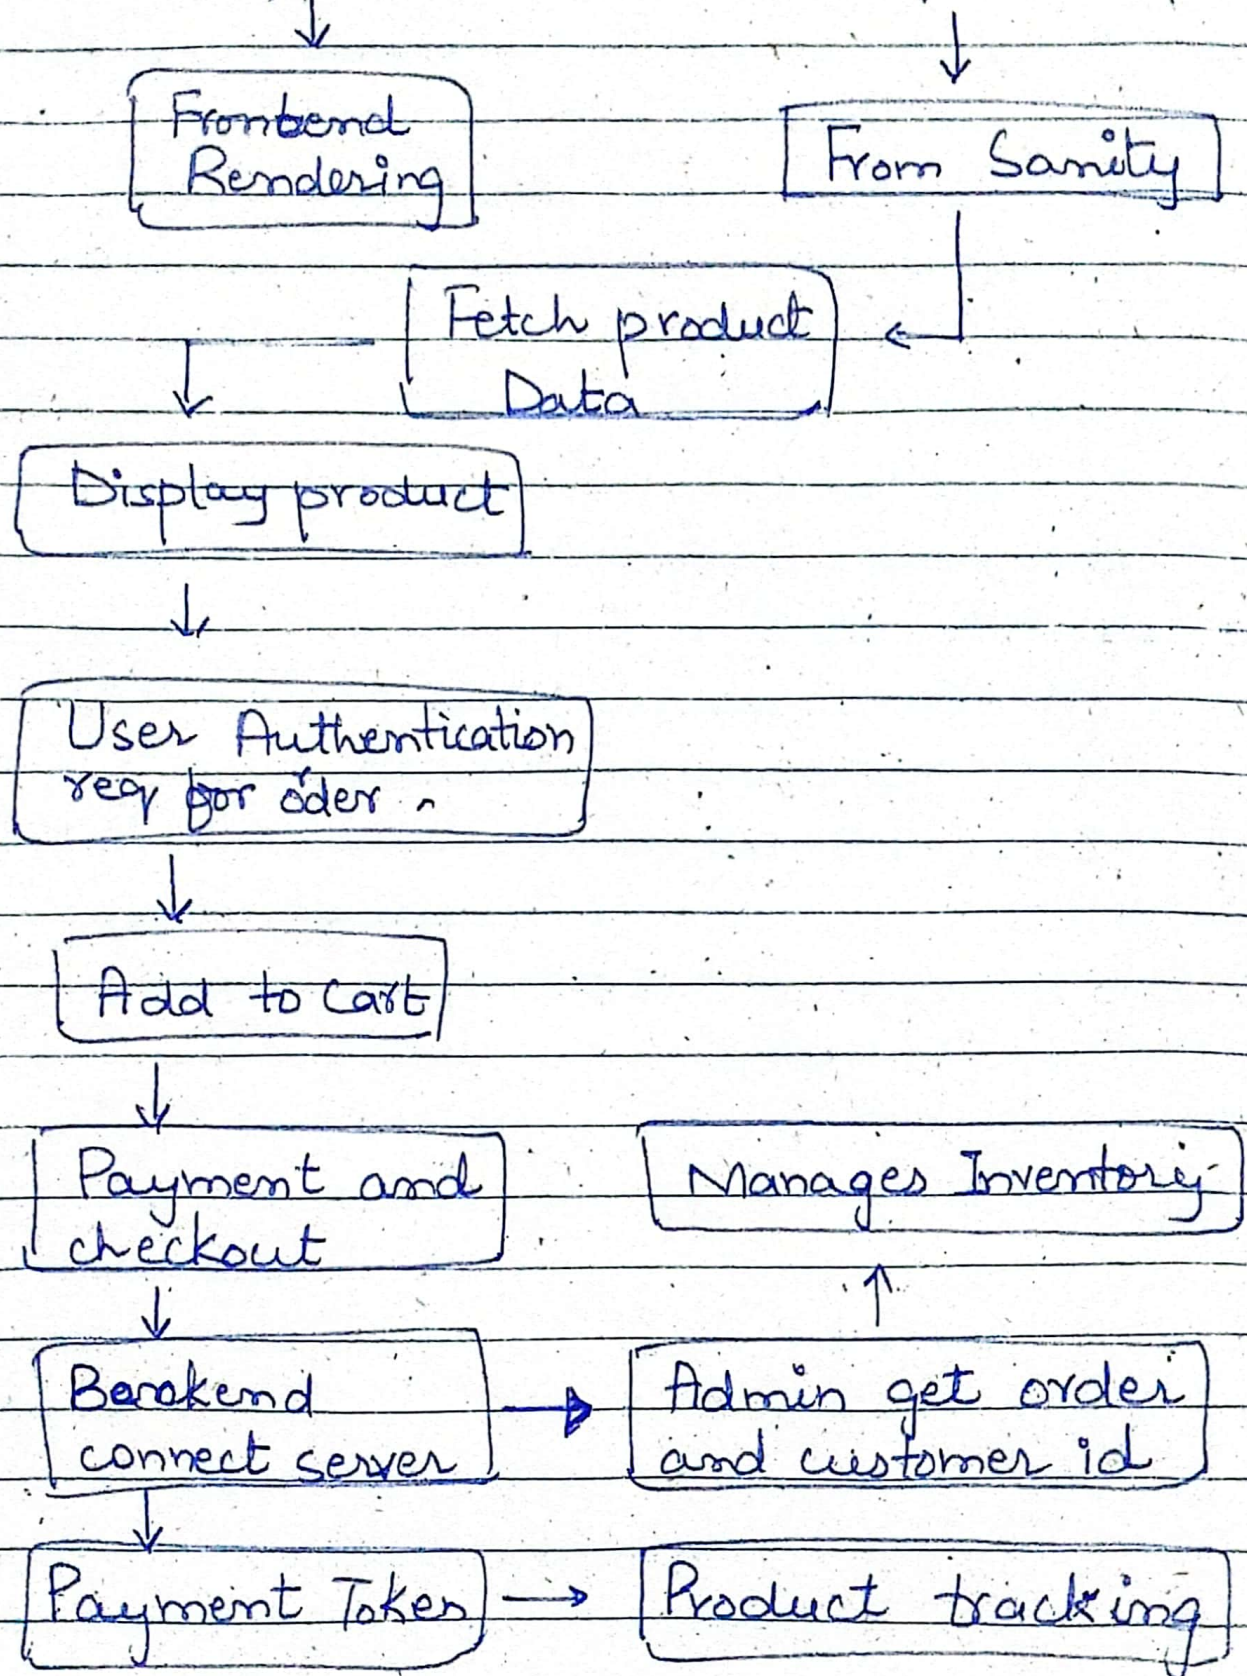 Frontend
Rendering
From Sanity
Fetch product
Data
Display product
User Authentication
req for oder
Add to cart
Payment and
checkout
Manages Inventory
Backend
connect server
Admin get order
and customer id
Payment Token
Product tracking